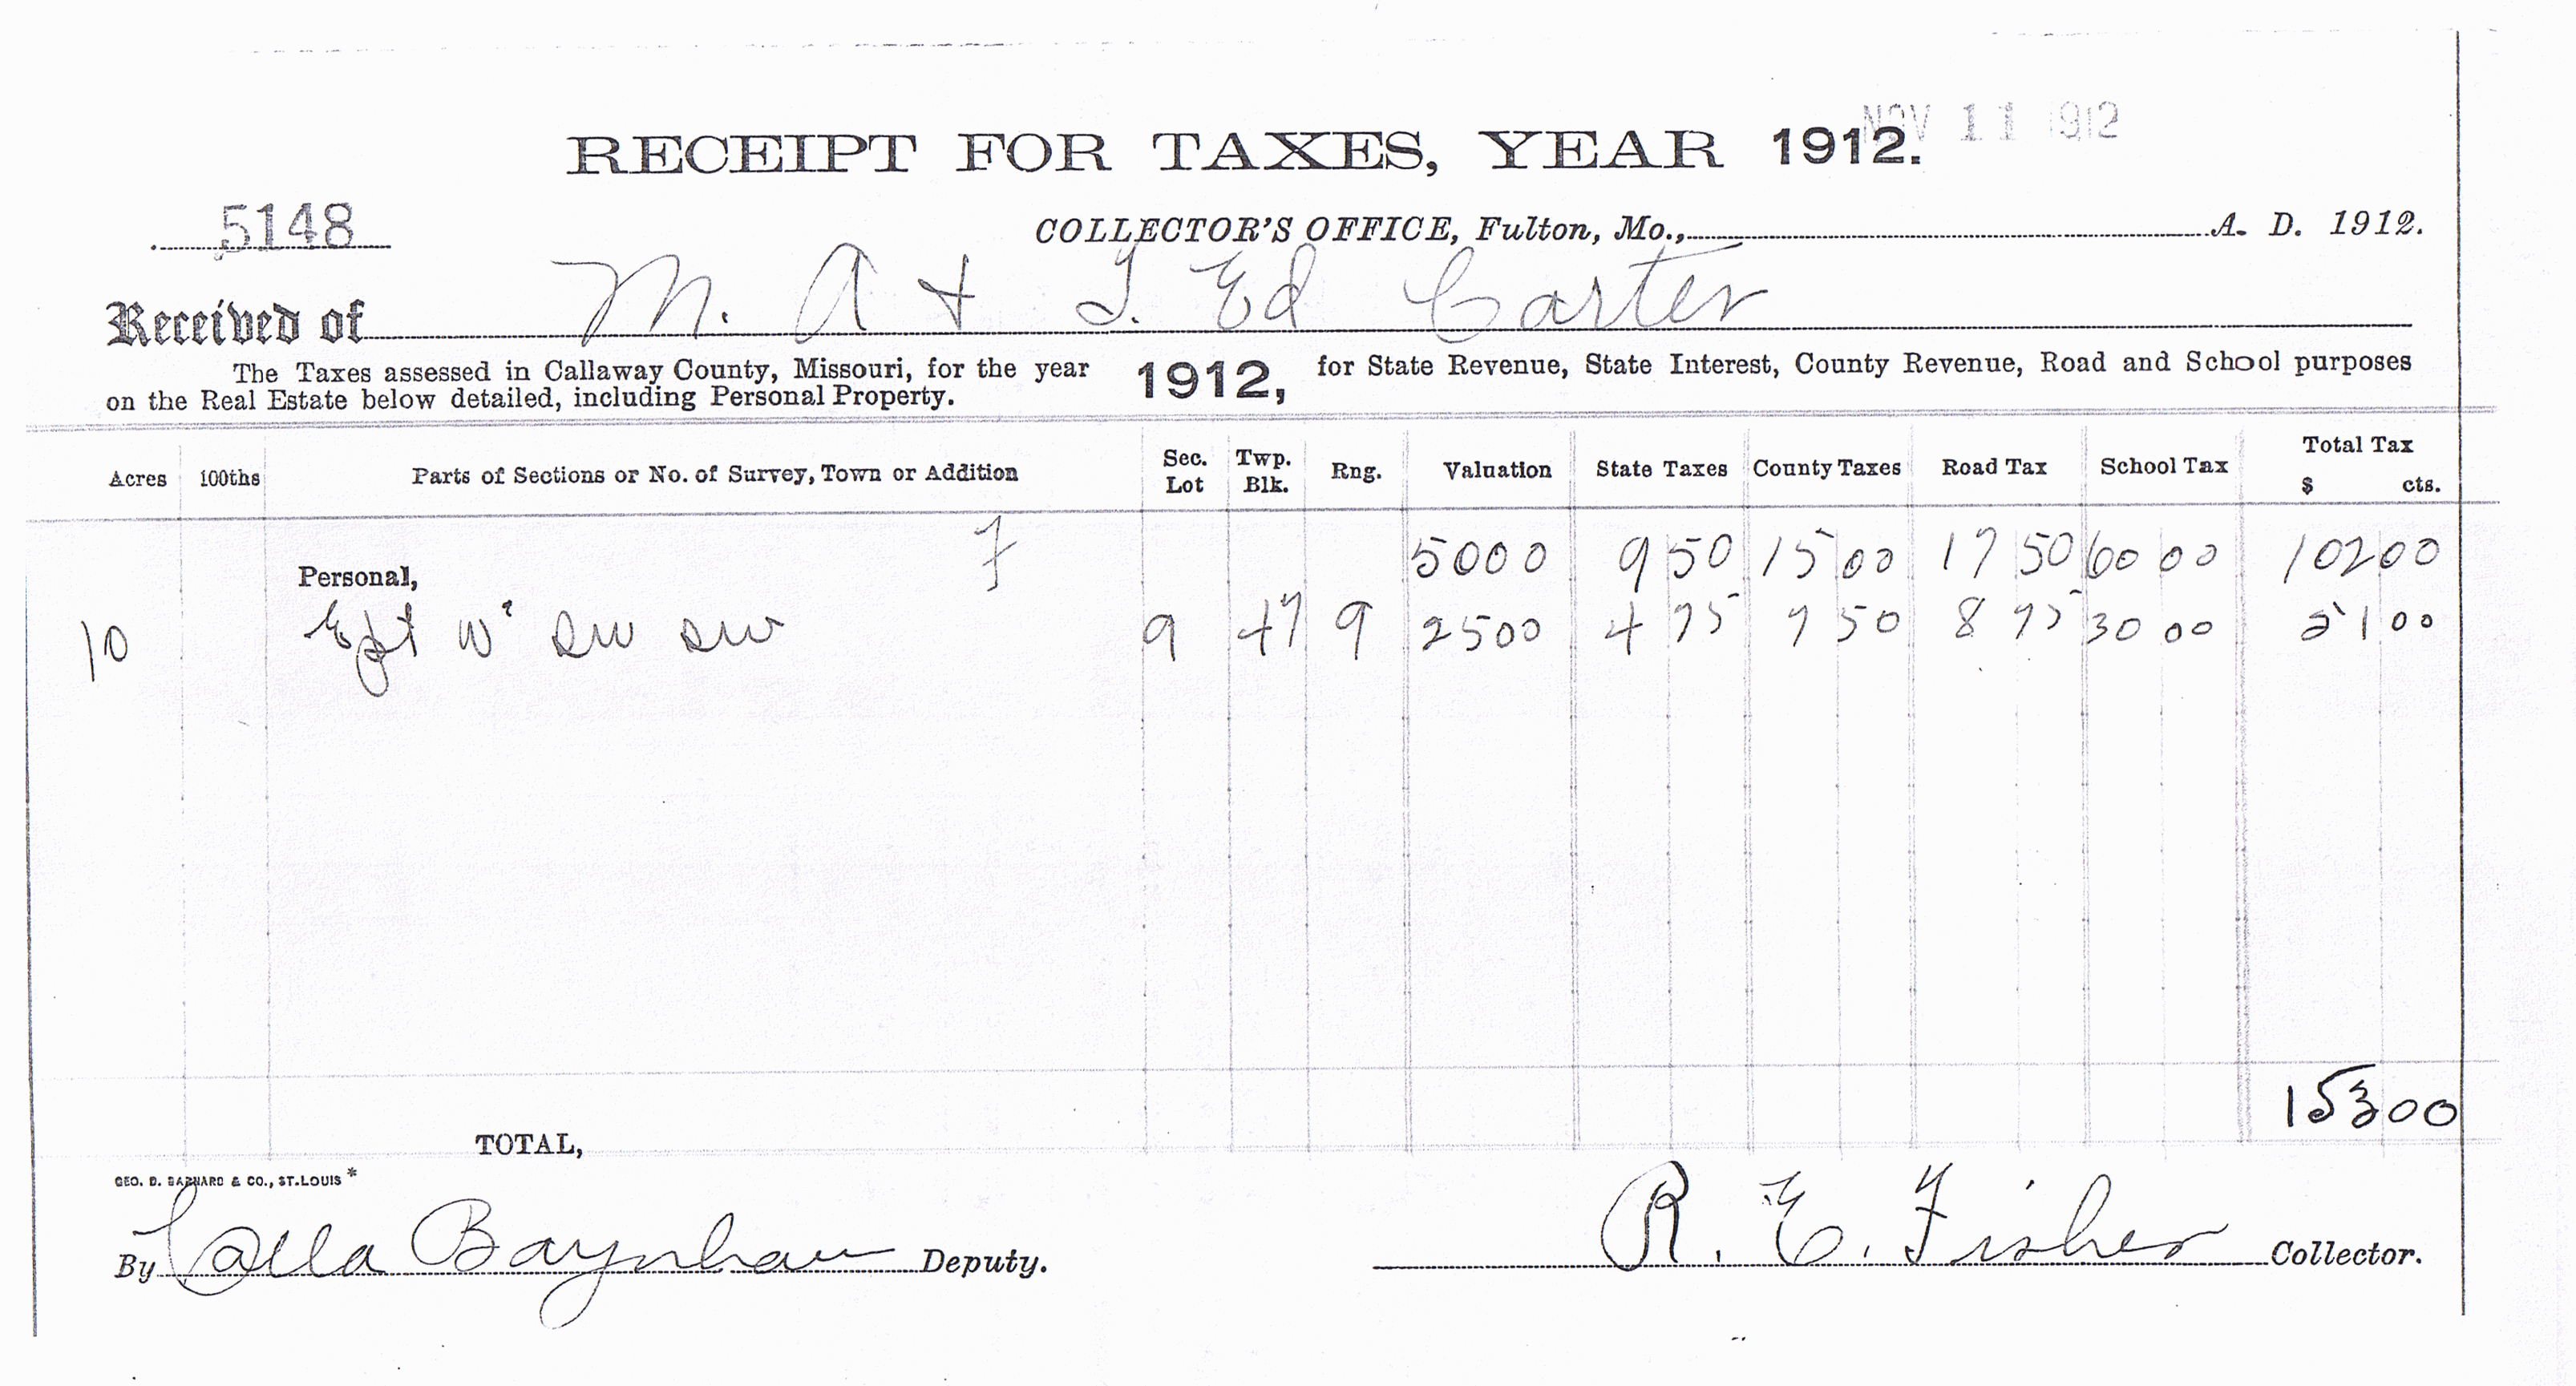 NOV 11 1912
RECEIPT FOR TAXES, YEAR 1912.
5148
COLLECTOR'S OFFICE, Fulton, Mo., A. D. 1912.
Received of M. A & T. Ed Carter
The Taxes assessed in Callaway County, Missouri, for the year 1912, for State Revenue, State Interest, County Revenue, Road and School purposes
on the Real Estate below detailed, including Personal Property.
Acres 100ths Parts of Sections or No. of Survey, Town or Addition Sec. Lot Twp. Blk. Rng. Valuation State Taxes County Taxes Road Tax School Tax Total Tax $ cts.
Personal, 7 5000 9 50 15 00 17 50 60 00 102 00
10 E pt W² SW SW 9 47 9 2500 4 75 7 50 8 75 30 00 51 00
TOTAL, 153 00
GEO. D. BARNARD & CO., ST. LOUIS *
By Calla Baynham Deputy. R. E. Fisher Collector.